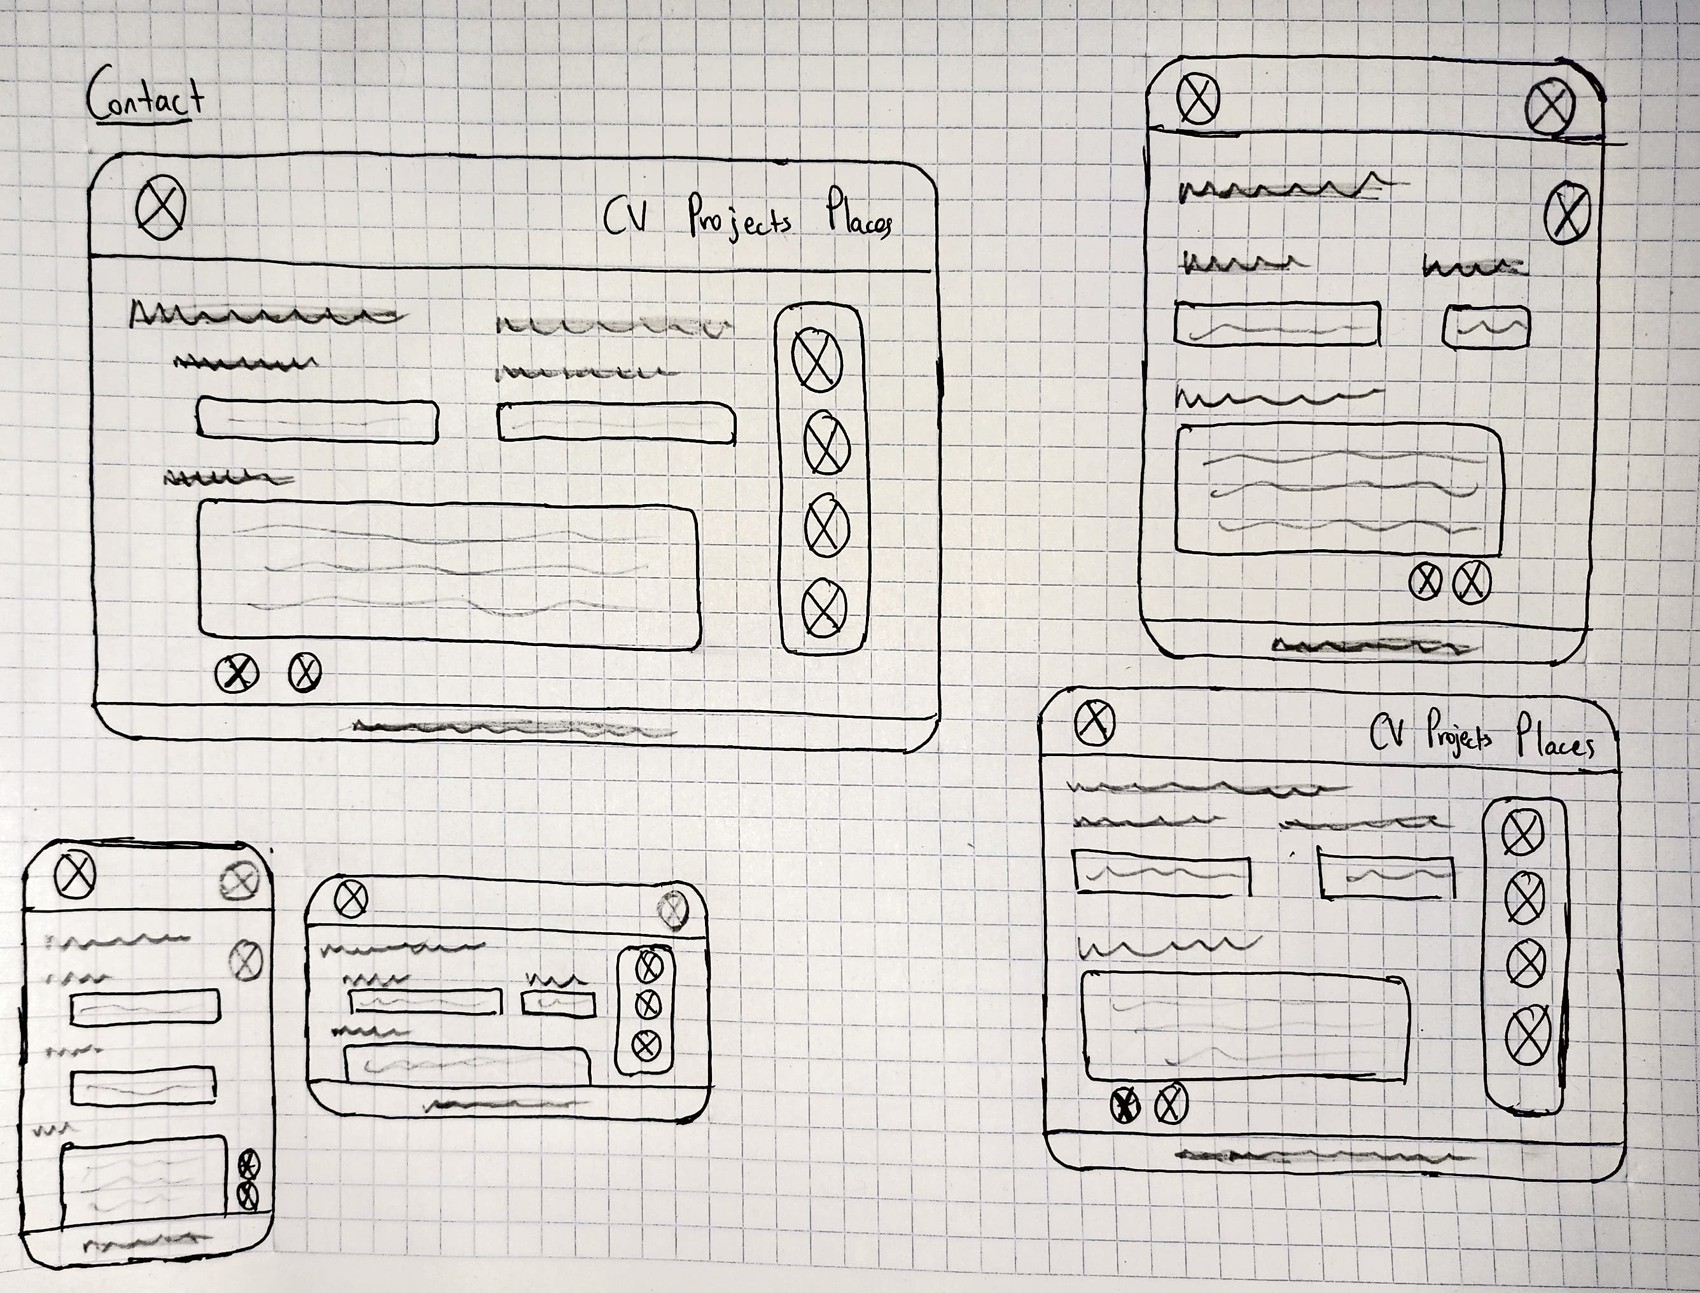 Contact
CV Projects Places
CV Projects Places